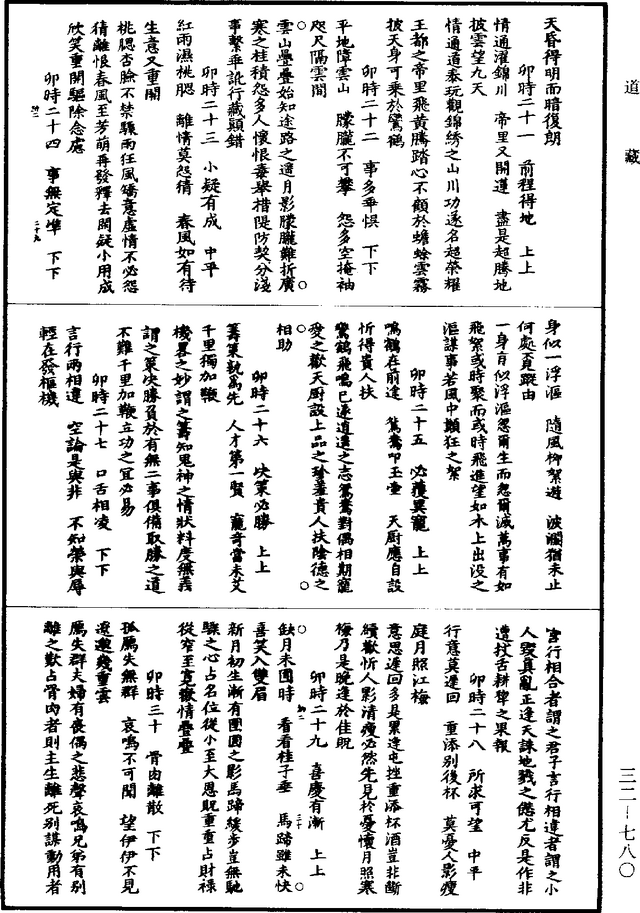 道藏
三二—七八〇
天昏得明而暗復朗
卯時二十一　前程得地　上上
情通濯錦川　帝里又開蓮　盡是超勝地
披雲望九天
情通道泰玩觀錦綉之山川功遂名超榮耀
王都之帝里飛黃騰踏心不顧於蟾蜍雲霧
披天身可乘於鸞鶴
卯時二十二　事多乖悞　下下
平地障雲山　朦朧不可攀　怨多空掩袖
咫尺隔雲間
雲山疊疊始知途路之遙月影朦朧難折廣
寒之桂積怨多人懷恨棄舉措隄防契分淺
事繫乖訛行藏顛錯
卯時二十三　小疑有成　中平
紅雨濕桃腮　離情莫怨猜　春風如有待
生意又重開
桃腮杏臉不禁驟雨狂風矯意虛情不必怨
猜離恨春風至芳萌再發釋去閑疑小用成
欣笑重開驅除念慮
卯時二十四　事無定準　下下
身似一浮漚　隨風柳絮遊　波瀾猶未止
何處覓蹤由
一身育似浮漚忽爾生而忽爾滅萬事有如
飛絮或時聚而或時飛進望如水上出没之
漚謀事若風中顛狂之絮
卯時二十五　必獲異寵　上上
鳴鶴在前逵　鴛鴦叩玉堂　天厨應自設
忻得貴人扶
鸞鶴飛鳴已遂逍遥之志鴛鴦對偶相期寵
愛之歡天厨設上品之珍羞貴人扶陰德之
相助
卯時二十六　决策必勝　上上
籌策孰爲先　人才第一賢　寵奇當未艾
千里獨加鞭
機畧之妙謂之籌知鬼神之情狀料度無義
謂之策决勝負於有無二事俱備取勝之道
不難千里加鞭立功之宜必易
卯時二十七　口舌相凌　下下
言行兩相違　空論是與非　不知榮與辱
輕在發樞機
言行相合者謂之君子言行相違者謂之小
人毀真亂正逢天誅地戮之愆尤反是作非
遭拔舌耕犂之果報
卯時二十八　所求可望　中平
行意莫遲回　重添别後杯　莫憂人影瘦
庭月照江梅
意思遲回多是累逢屯挫重添杯酒豈非斷
續歡忻人影清瘦必然先見於憂懷月照寒
梅乃是晚逢於佳貺
卯時二十九　喜慶有漸　上上
缺月未圓時　看看桂子垂　馬蹄雖未快
喜笑入雙眉
新月初生漸有團圓之影馬蹄緩步豈無馳
驟之心占名位從小至大恩貺重重占財禄
從窄至寛歡情疊疊
卯時三十　骨肉離散　下下
孤鴈失無群　哀鳴不可聞　望伊伊不見
邈邈幾重雲
鴈失群夫婦有喪偶之悲聲哀鳴兄弟有别
離之歎占骨肉者則主生離死别謀動用者